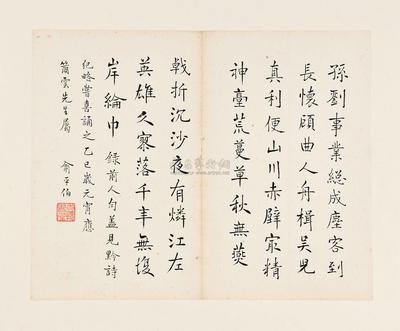 孫劉事業總成塵客到
長懷顧曲人舟楫吴兒
真利便山川赤壁冣精
神臺荒蔓草秋無燕
戟折沉沙夜有燐江左
英雄久寥落千年無復
岸綸巾 録前人句蓋見黔詩
紀略嘗喜誦之乙巳歲元宵應
簡雲先生屬 俞平伯